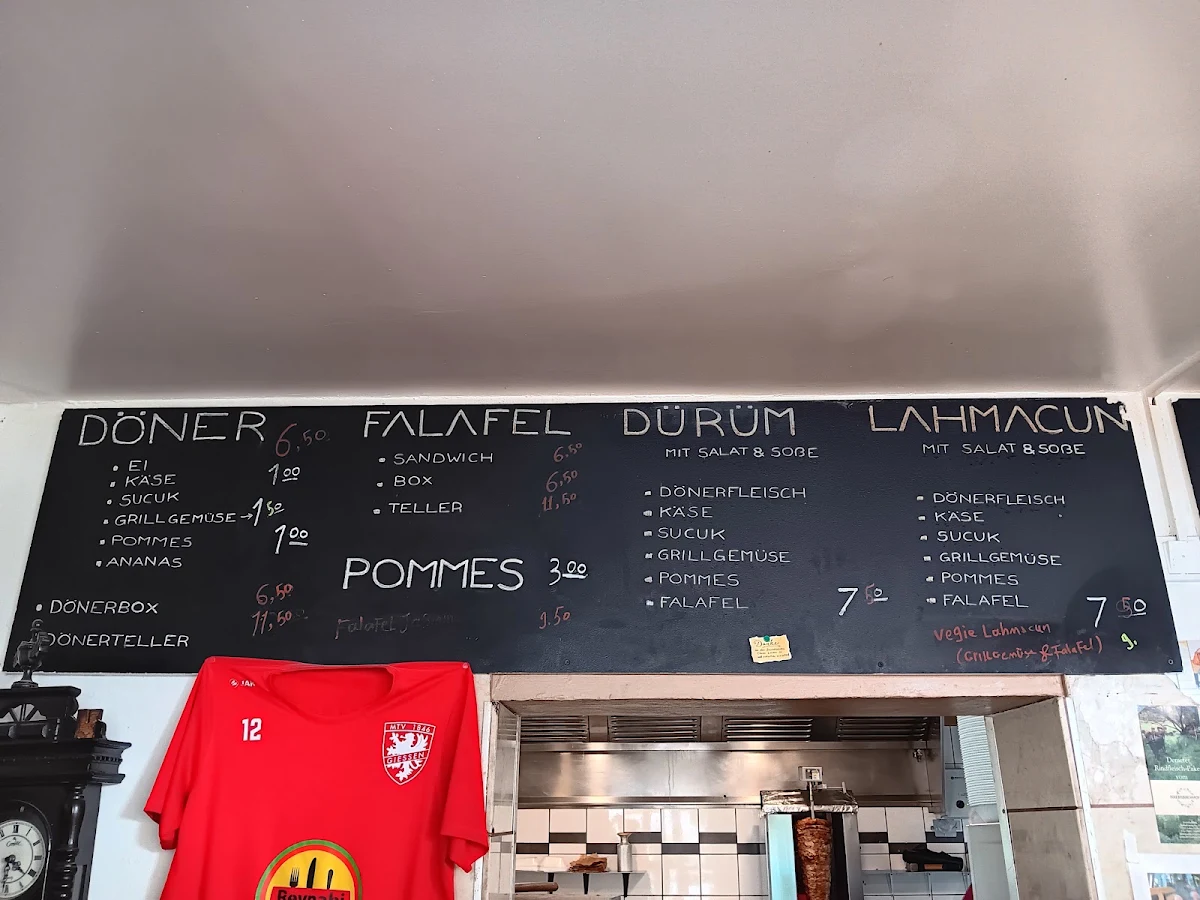 DÖNER 6,50
EI
KÄSE 1 00
SUCUK
GRILLGEMÜSE → 1 50
POMMES 1 00
ANANAS
DÖNERBOX 6,50
DÖNERTELLER 11,50
FALAFEL
SANDWICH 6,50
BOX 6,50
TELLER 11,50
POMMES 3 00
Falafel
DÜRÜM
MIT SALAT & SOßE
DÖNERFLEISCH
KÄSE
SUCUK
GRILLGEMÜSE
POMMES
FALAFEL 7 50
LAHMACUN
MIT SALAT & SOßE
DÖNERFLEISCH
KÄSE
SUCUK
GRILLGEMÜSE
POMMES
FALAFEL 7 50
Vegie Lahmacun
(Grillgemüse & Falafel) 9.
12
MTV 1846
GIESSEN
Beynabi